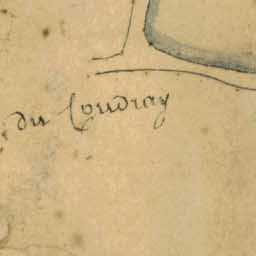 du Coudray